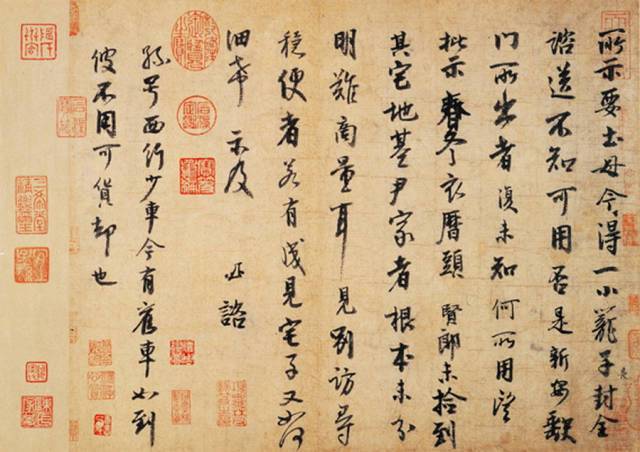 所示要土母今得一小籠子封全
諮送不知可用否是新安缺
門所出者復未知何所用望
批示春冬衣曆頭賢郎未拾到
其宅地基尹家者根本未分
明難商量耳見別訪尋
穩便者若有淺見宅子又如何
細希示及 諮
孫号西行少車今有舊車如到
彼不用可貨却也